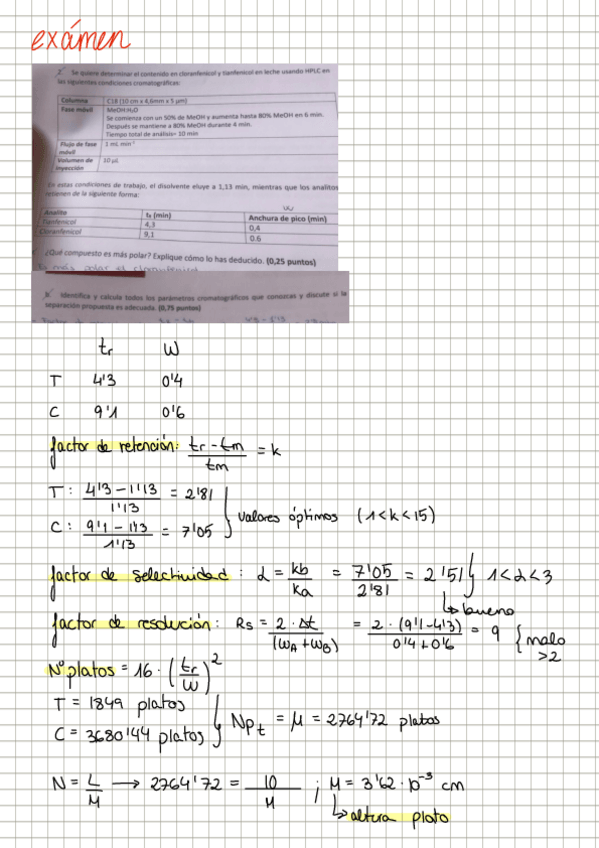 exámen
2. Se quiere determinar el contenido en cloranfenicol y tianfenicol en leche usando HPLC en
las siguientes condiciones cromatográficas:
Columna C18 (10 cm x 4,6mm x 5 µm)
Fase móvil MeOH:H₂O
Se comienza con un 50% de MeOH y aumenta hasta 80% MeOH en 6 min.
Después se mantiene a 80% MeOH durante 4 min.
Tiempo total de análisis= 10 min
Flujo de fase móvil 1 mL min⁻¹
Volumen de inyección 10 µL
En estas condiciones de trabajo, el disolvente eluye a 1,13 min, mientras que los analitos
retienen de la siguiente forma:
W
Analito tᵣ (min) Anchura de pico (min)
Tianfenicol 4,3 0,4
Cloranfenicol 9,1 0.6
¿Qué compuesto es más polar? Explique cómo lo has deducido. (0,25 puntos)
Es más polar el cloranfenicol
b. Identifica y calcula todos los parámetros cromatográficos que conozcas y discute si la
separación propuesta es adecuada. (0,75 puntos)
tr W
T 4'3 0'4
C 9'1 0'6
factor de retención: tr - tm / tm = k
T: 4'3 - 1'13 / 1'13 = 2'81
C: 9'1 - 1'13 / 1'13 = 7'05 } valores óptimos (1<k<15)
factor de selectividad: α = kb / ka = 7'05 / 2'81 = 2'51 } 1<α<3
↳ bueno
factor de resolución: Rs = 2 · Δt / (WA + WB) = 2 · (9'1-4'3) / 0'4 + 0'6 = 9 { malo >2
Nº platos = 16 · (tr / W)²
T = 1849 platos
C = 3680'44 platos } Npt = µ = 2764'72 platos
N = L / H → 2764'72 = 10 / H ; H = 3'62 · 10⁻³ cm
↳ altura plato